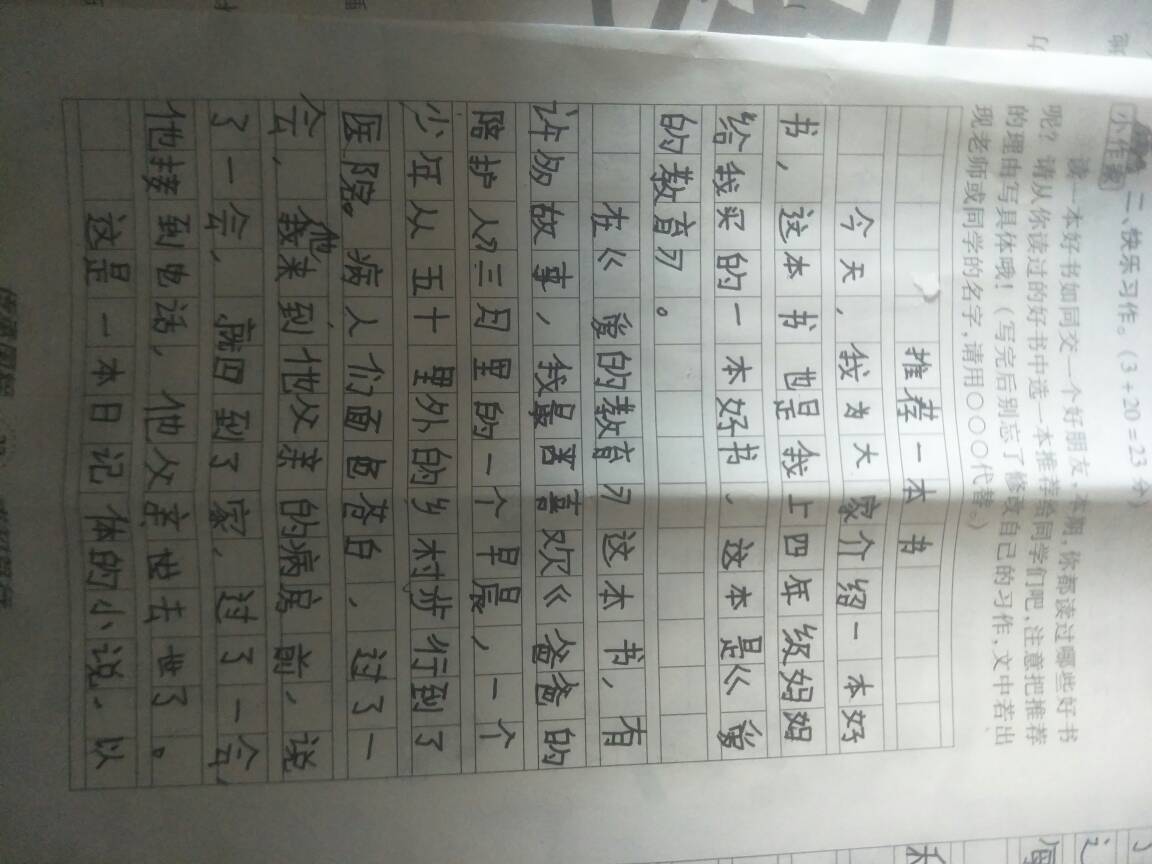 小作家 二、快乐习作。(3+20=23分)
读一本好书如同交一个好朋友,本期,你都读过哪些好书
呢?请从你读过的好书中选一本推荐给同学们吧,注意把推荐
的理由写具体哦!(写完后别忘了修改自己的习作,文中若出
现老师或同学的名字,请用○○○代替。)
推荐一本书
今天,我为大家介绍一本好
书,这本书也是我上四年级妈妈
给我买的一本好书,这本是《爱
的教育》。
在《爱的教育》这本书,有
许多故事,我最喜欢《爸爸的
陪护人》三月里的一个早晨,一个
少年从五十里外的乡村步行到了
医院。病人们面色苍白,过了一
会,他来到他父亲的病房前,说
了一会,就回到了家,过了一会,
他接到电话,他父亲他去世了。
这是一本日记体的小说,以